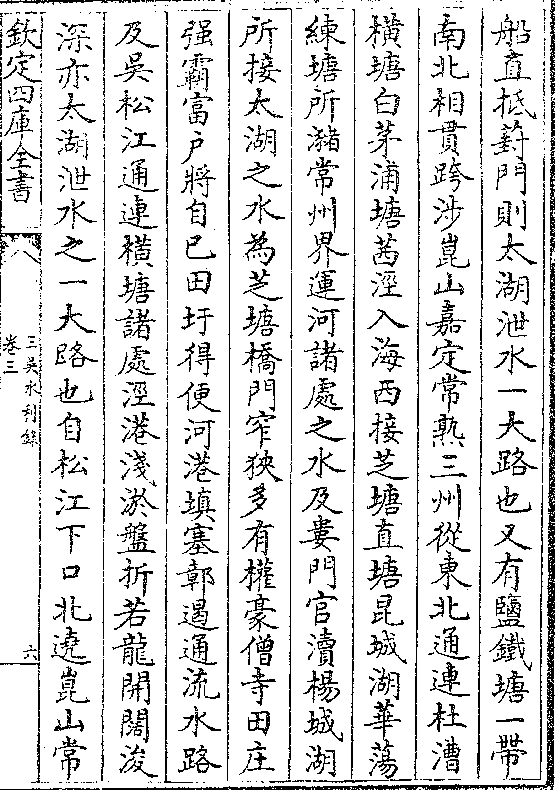 船直抵葑門則太湖泄水一大路也又有鹽鐵塘一帶
南北相貫跨涉崑山嘉定常熟三州從東北通連杜漕
橫塘白茅浦塘茜涇入海西接芝塘直塘昆城湖華蕩
練塘所瀦常州界運河諸處之水及婁門官瀆楊城湖
所接太湖之水為芝塘橋門窄狹多有權豪僧寺田庄
强霸富户將自已田圩得便河港填塞鄣遏通流水路
及吳松江通連橫塘諸處涇港淺淤盤折若龍開闊浚
深亦太湖泄水之一大路也自松江下口北遶崑山常
欽定四庫全書
三吳水利錄
卷三
六